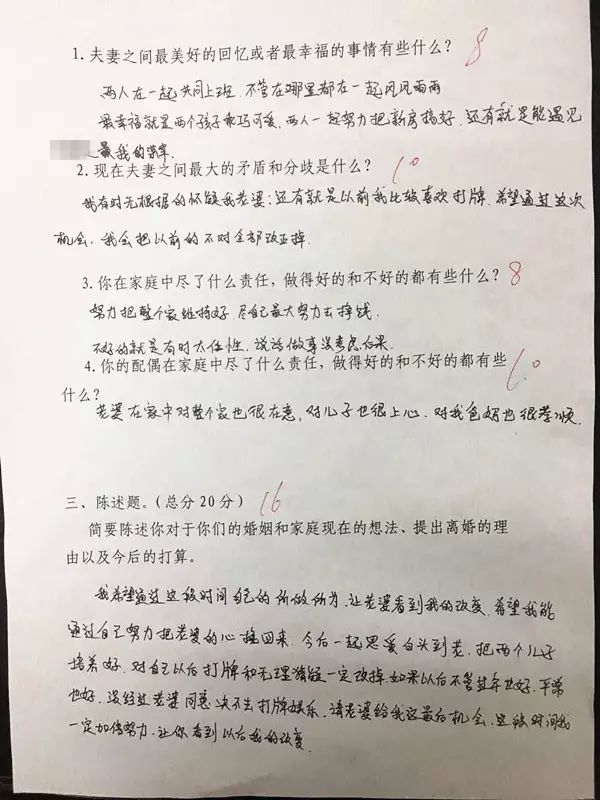 1. 夫妻之间最美好的回忆或者最幸福的事情有些什么？ 8
两人在一起共同上班. 不管在哪里都在一起风风雨雨
最幸福就是两个孩子乖巧可爱, 两人一起努力把新房搞好. 还有就是能遇见
是最我的荣幸.
2. 现在夫妻之间最大的矛盾和分歧是什么？ 10
我有时无根据的怀疑我老婆; 还有就是以前我比较喜欢打牌. 希望通过这次
机会. 我会把以前的不对全部改正掉.
3. 你在家庭中尽了什么责任，做得好的和不好的都有些什么？ 8
努力把整个家维持好. 尽自己最大努力去挣钱.
不好的就是有时太任性. 说话做事没考虑后果.
4. 你的配偶在家庭中尽了什么责任，做得好的和不好的都有些
什么？ 10
老婆在家中对整个家也很在意, 对儿子也很上心. 对我爸妈也很孝顺.
三、陈述题。（总分20分） 16
简要陈述你对于你们的婚姻和家庭现在的想法、提出离婚的理
由以及今后的打算。
我希望通过这段时间自己的所做所为. 让老婆看到我的改变. 希望我能
通过自己努力把老婆的心挽回来. 今后一起恩爱白头到老. 把两个儿子
培养好. 对自己以后打牌和无理猜疑一定改掉. 如果以后不管过年也好. 平常
也好, 没经过老婆同意决不去打牌娱乐. 请老婆给我这最后机会. 这段时间我
一定加倍努力. 让你看到以后我的改变.